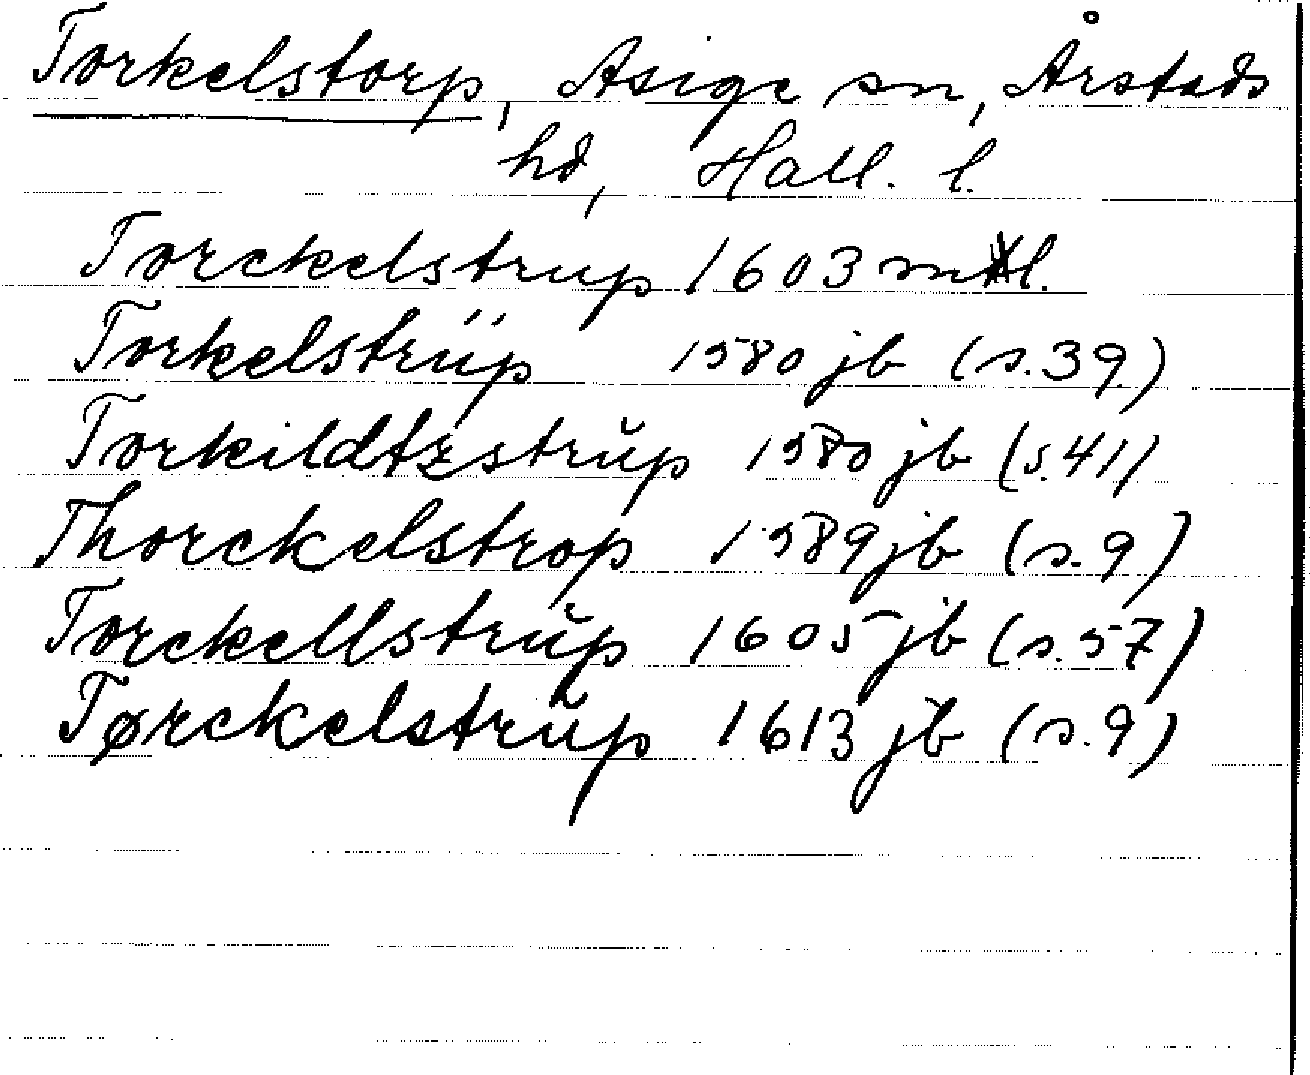 Torkelstorp, Asige sn, Årstads
hd, Hall. l.
Torckelstrup 1603 mtl.
Torkelstrüp 1580 jb (s.39)
Torkildtzstrŭp 1580 jb (s.41)
Thorckelstrop 1589 jb (s.9)
Torckellstrŭp 1605 jb (s.57)
Tørckelstrŭp 1613 jb (s.9)